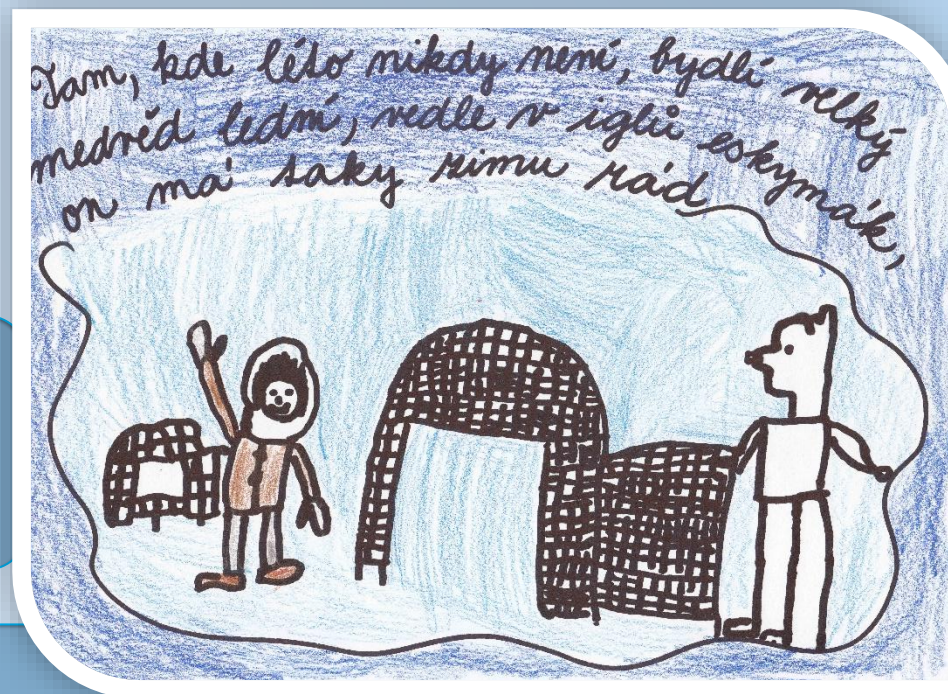 Tam, kde léto nikdy není, bydlí velký
medvěd lední, vedle v iglů eskymák,
on má taky zimu rád